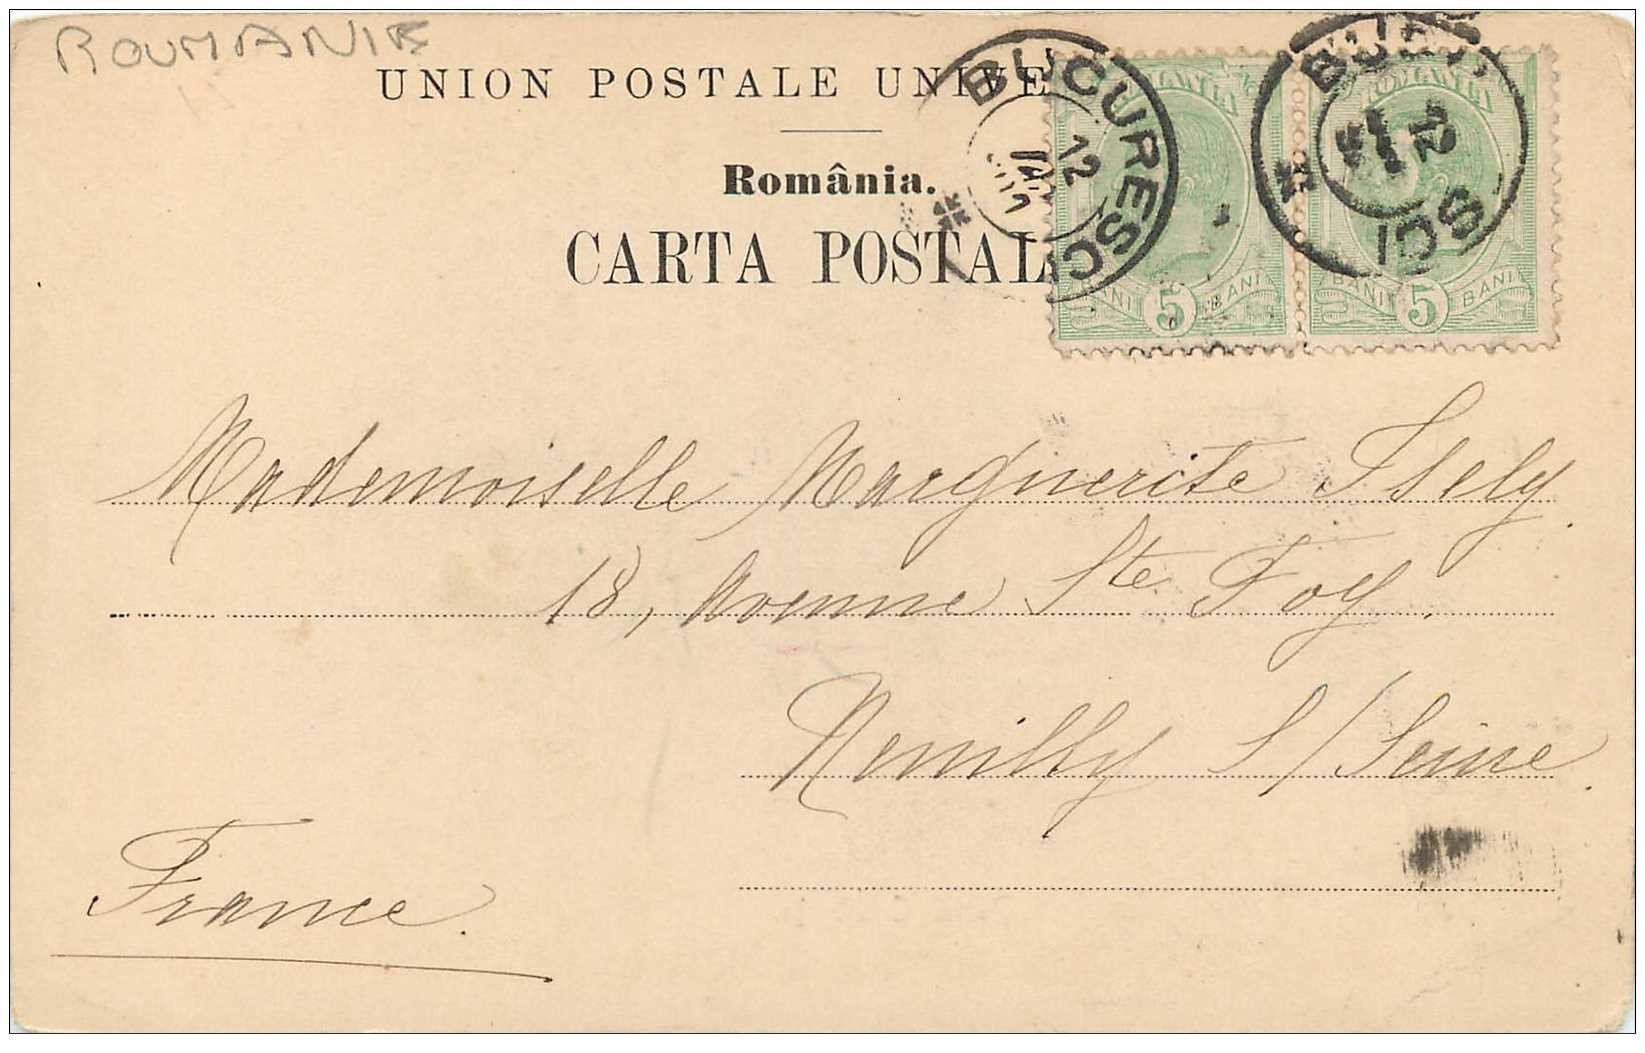 ROUMANIE
UNION POSTALE UNIVE
România.
CARTA POSTAL
BUCURESCI
12
BUCURESCI
12
ROMANIA
BANI 5 BANI
ROMANIA
BANI 5 BANI
Mademoiselle Marguerite Isely.
18, Avenue Ste Foy.
Neuilly S/Seine.
France.